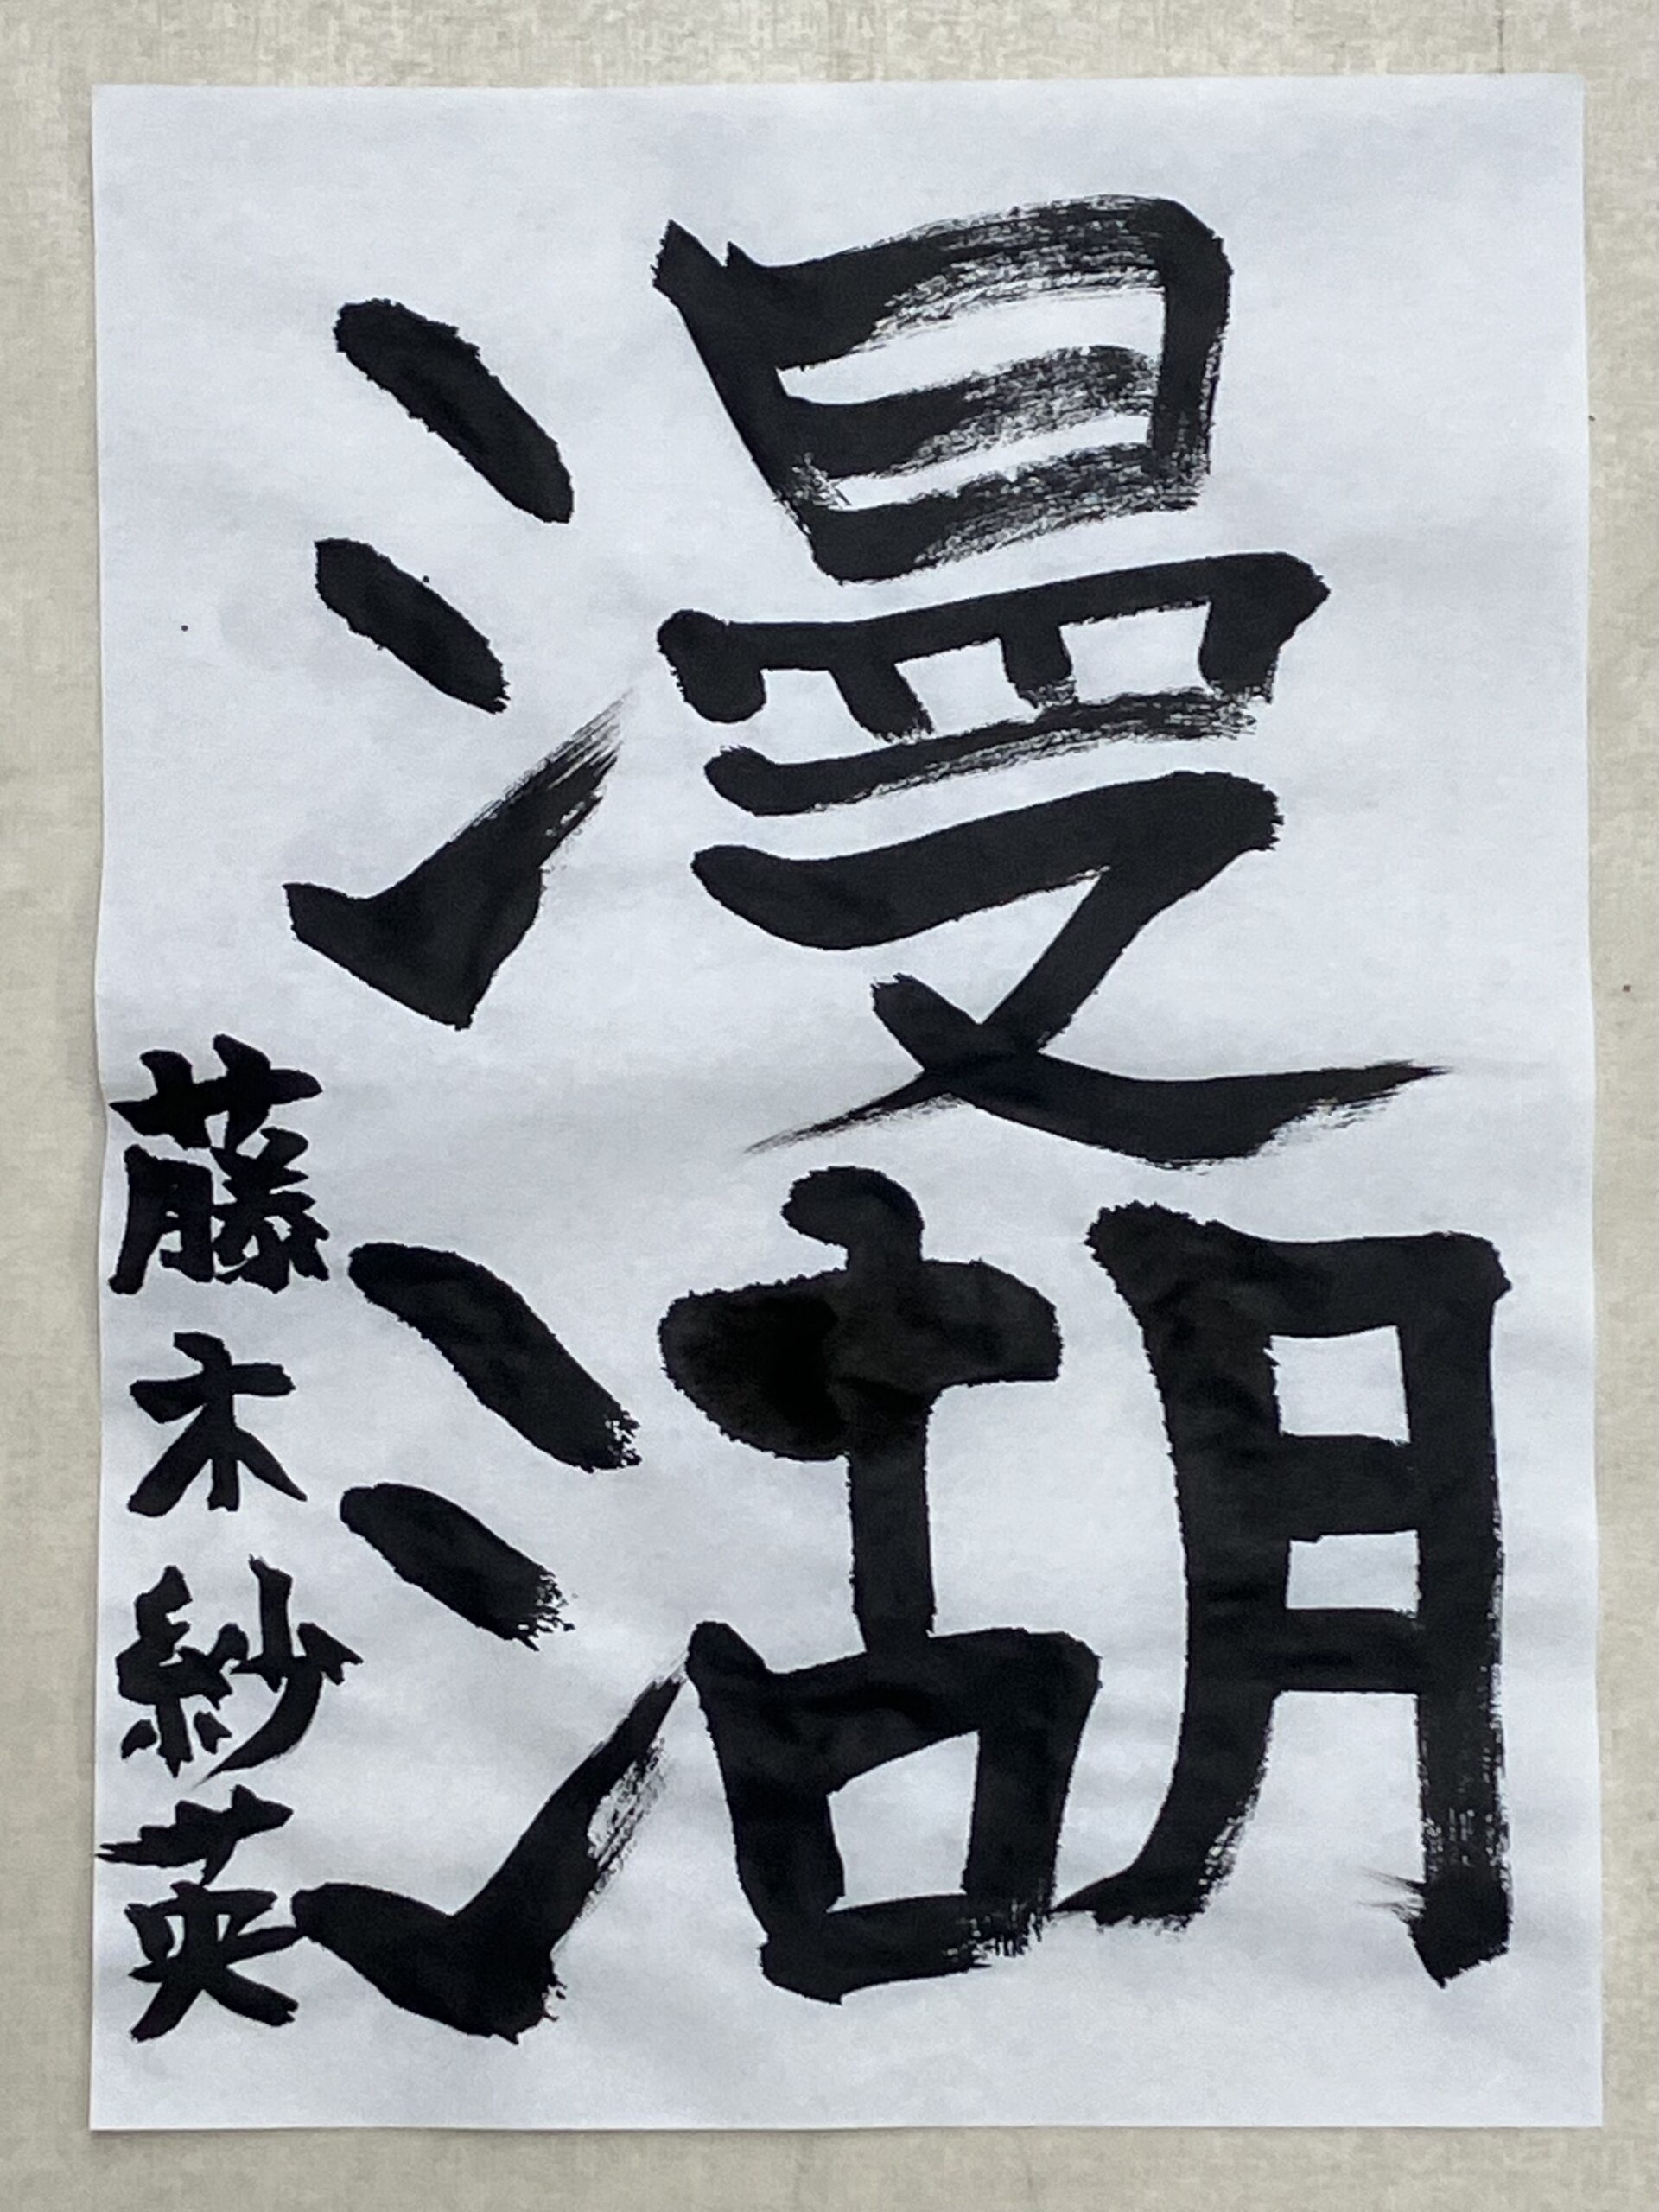 漫湖
藤木紗英